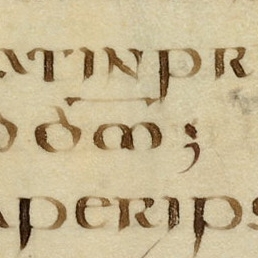 ATINPR
d d̄m̄;
APERIPS